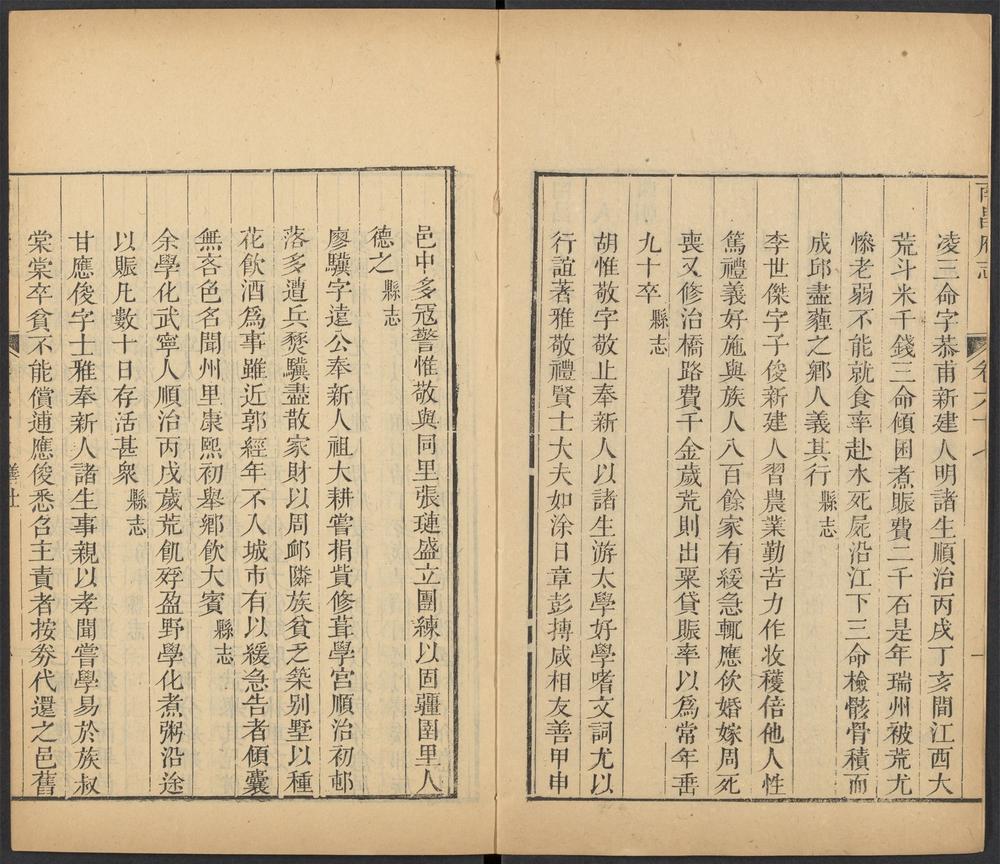 南昌府志
卷六十七
一
凌三命字恭甫新建人明諸生順治丙戌丁亥間江西大
荒斗米千錢三命傾囷煮賑費二千石是年瑞州被荒尤
慘老弱不能就食率赴水死屍沿江下三命檢骸骨積而
成邱盡薶之鄉人義其行縣志
李世傑字子俊新建人習農業勤苦力作收穫倍他人性
篤禮義好施與族人八百餘家有緩急輒應佽婚嫁周死
喪又修治橋路費千金歲荒則出粟貸賑率以爲常年垂
九十卒縣志
胡惟敬字敬止奉新人以諸生游太學好學嗜文詞尤以
行誼著雅敬禮賢士大夫如涂日章彭摶咸相友善甲申
邑中多寇警惟敬與同里張璉盛立團練以固疆圉里人
德之縣志
廖驥字遠公奉新人祖大耕嘗捐貲修葺學宮順治初邨
落多遭兵燹驥盡散家財以周䘏隣族貧乏築别墅以種
花飲酒爲事雖近郭經年不入城市有以緩急告者傾囊
無吝色名聞州里康熙初舉鄉飲大賓縣志
余學化武寧人順治丙戌歲荒飢殍盈野學化煮粥沿途
以賑凡數十日存活甚衆縣志
甘應俊字士雅奉新人諸生事親以孝聞嘗學易於族叔
棠棠卒貧不能償逋應俊悉召主責者按劵代還之邑舊